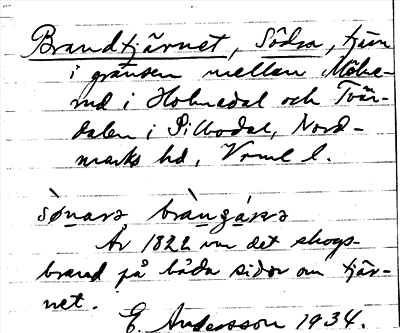 Brandtjärnet, Södra, tjärn
i gränsen mellan
i Holmedal och Tvär-
dalen i Silbodal, Nord-
marks hd, Vrml l.
sònarə bràngáɳə
År 1822 var det skogs-
brand på båda sidor om tjär-
net.
E. Andersson 1934.